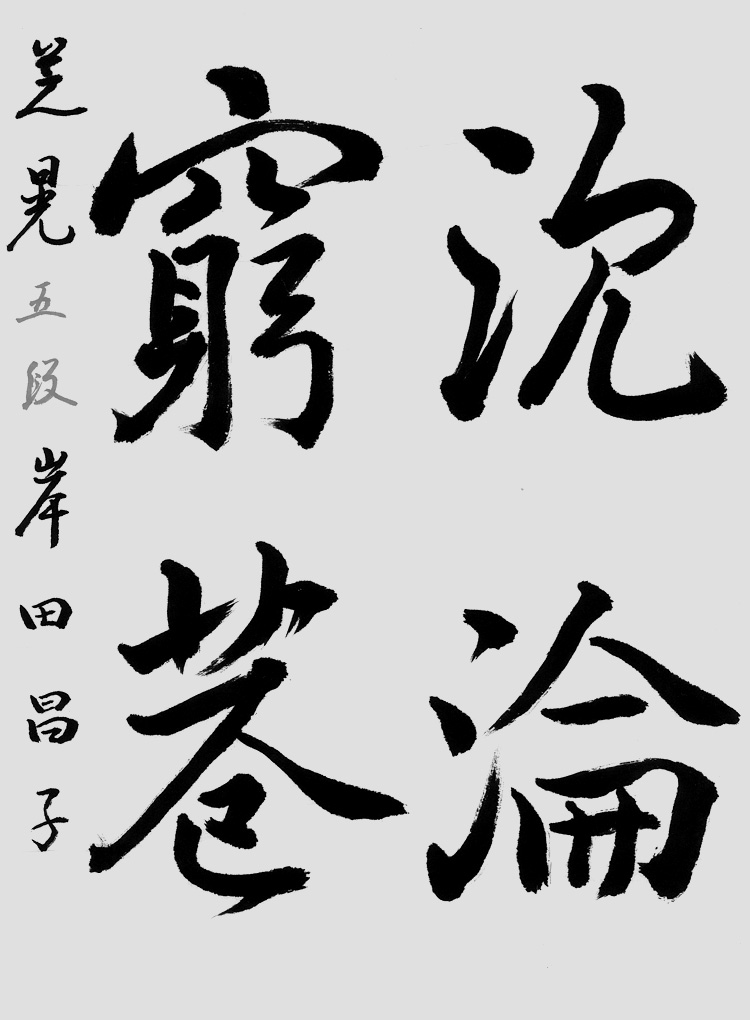 沈淪
窮巷
芝晃 五段 岸田昌子